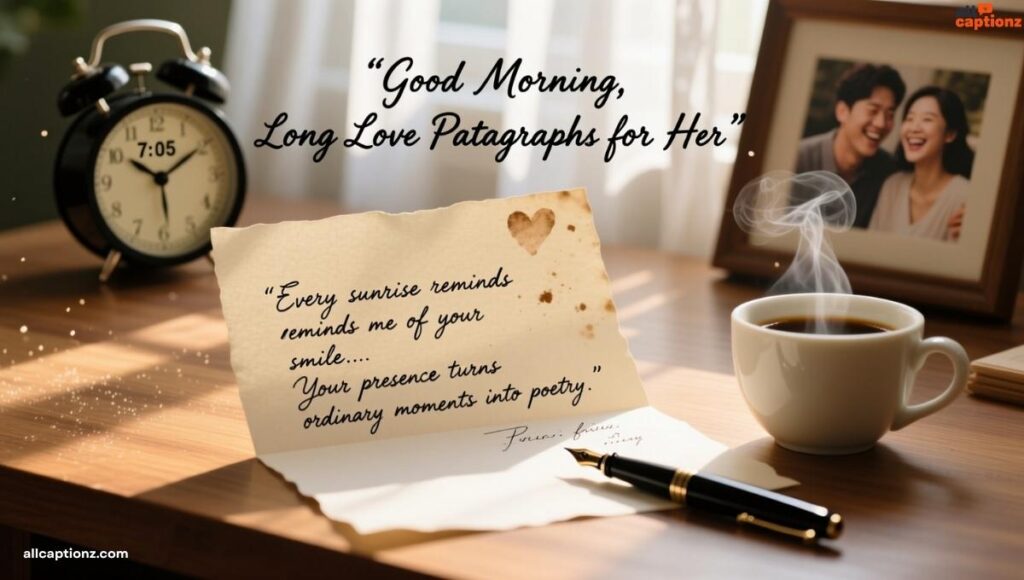 captionz
"Good Morning,
Long Love Patagraphs for Her"
7:05
"Every sunrise reminds
reminds me of your
smile....
Your presence turns
ordinary moments into poetry."
allcaptionz.com